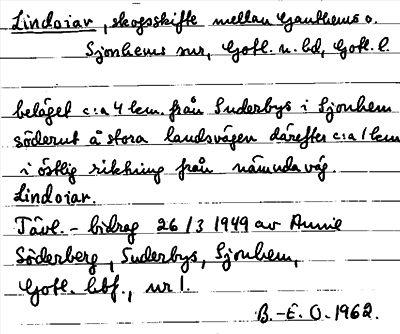 Lindoiar, skogsskifte mellan Ganthems o.
Sjonhems snr, Gotl. n. hd, Gotl. l.
beläget c:a 4 km. från Suderbys i Sjonhem
söderut å stora landsvägen därefter c:a 1 km
i östlig riktning från nämnda väg.
Lindoiar.
Tävl. - bidrag 26/3 1949 av Annie
Söderberg, Suderbys, Sjonhem,
Gotl. hbf., nr 1.
B.-E. O. 1962.